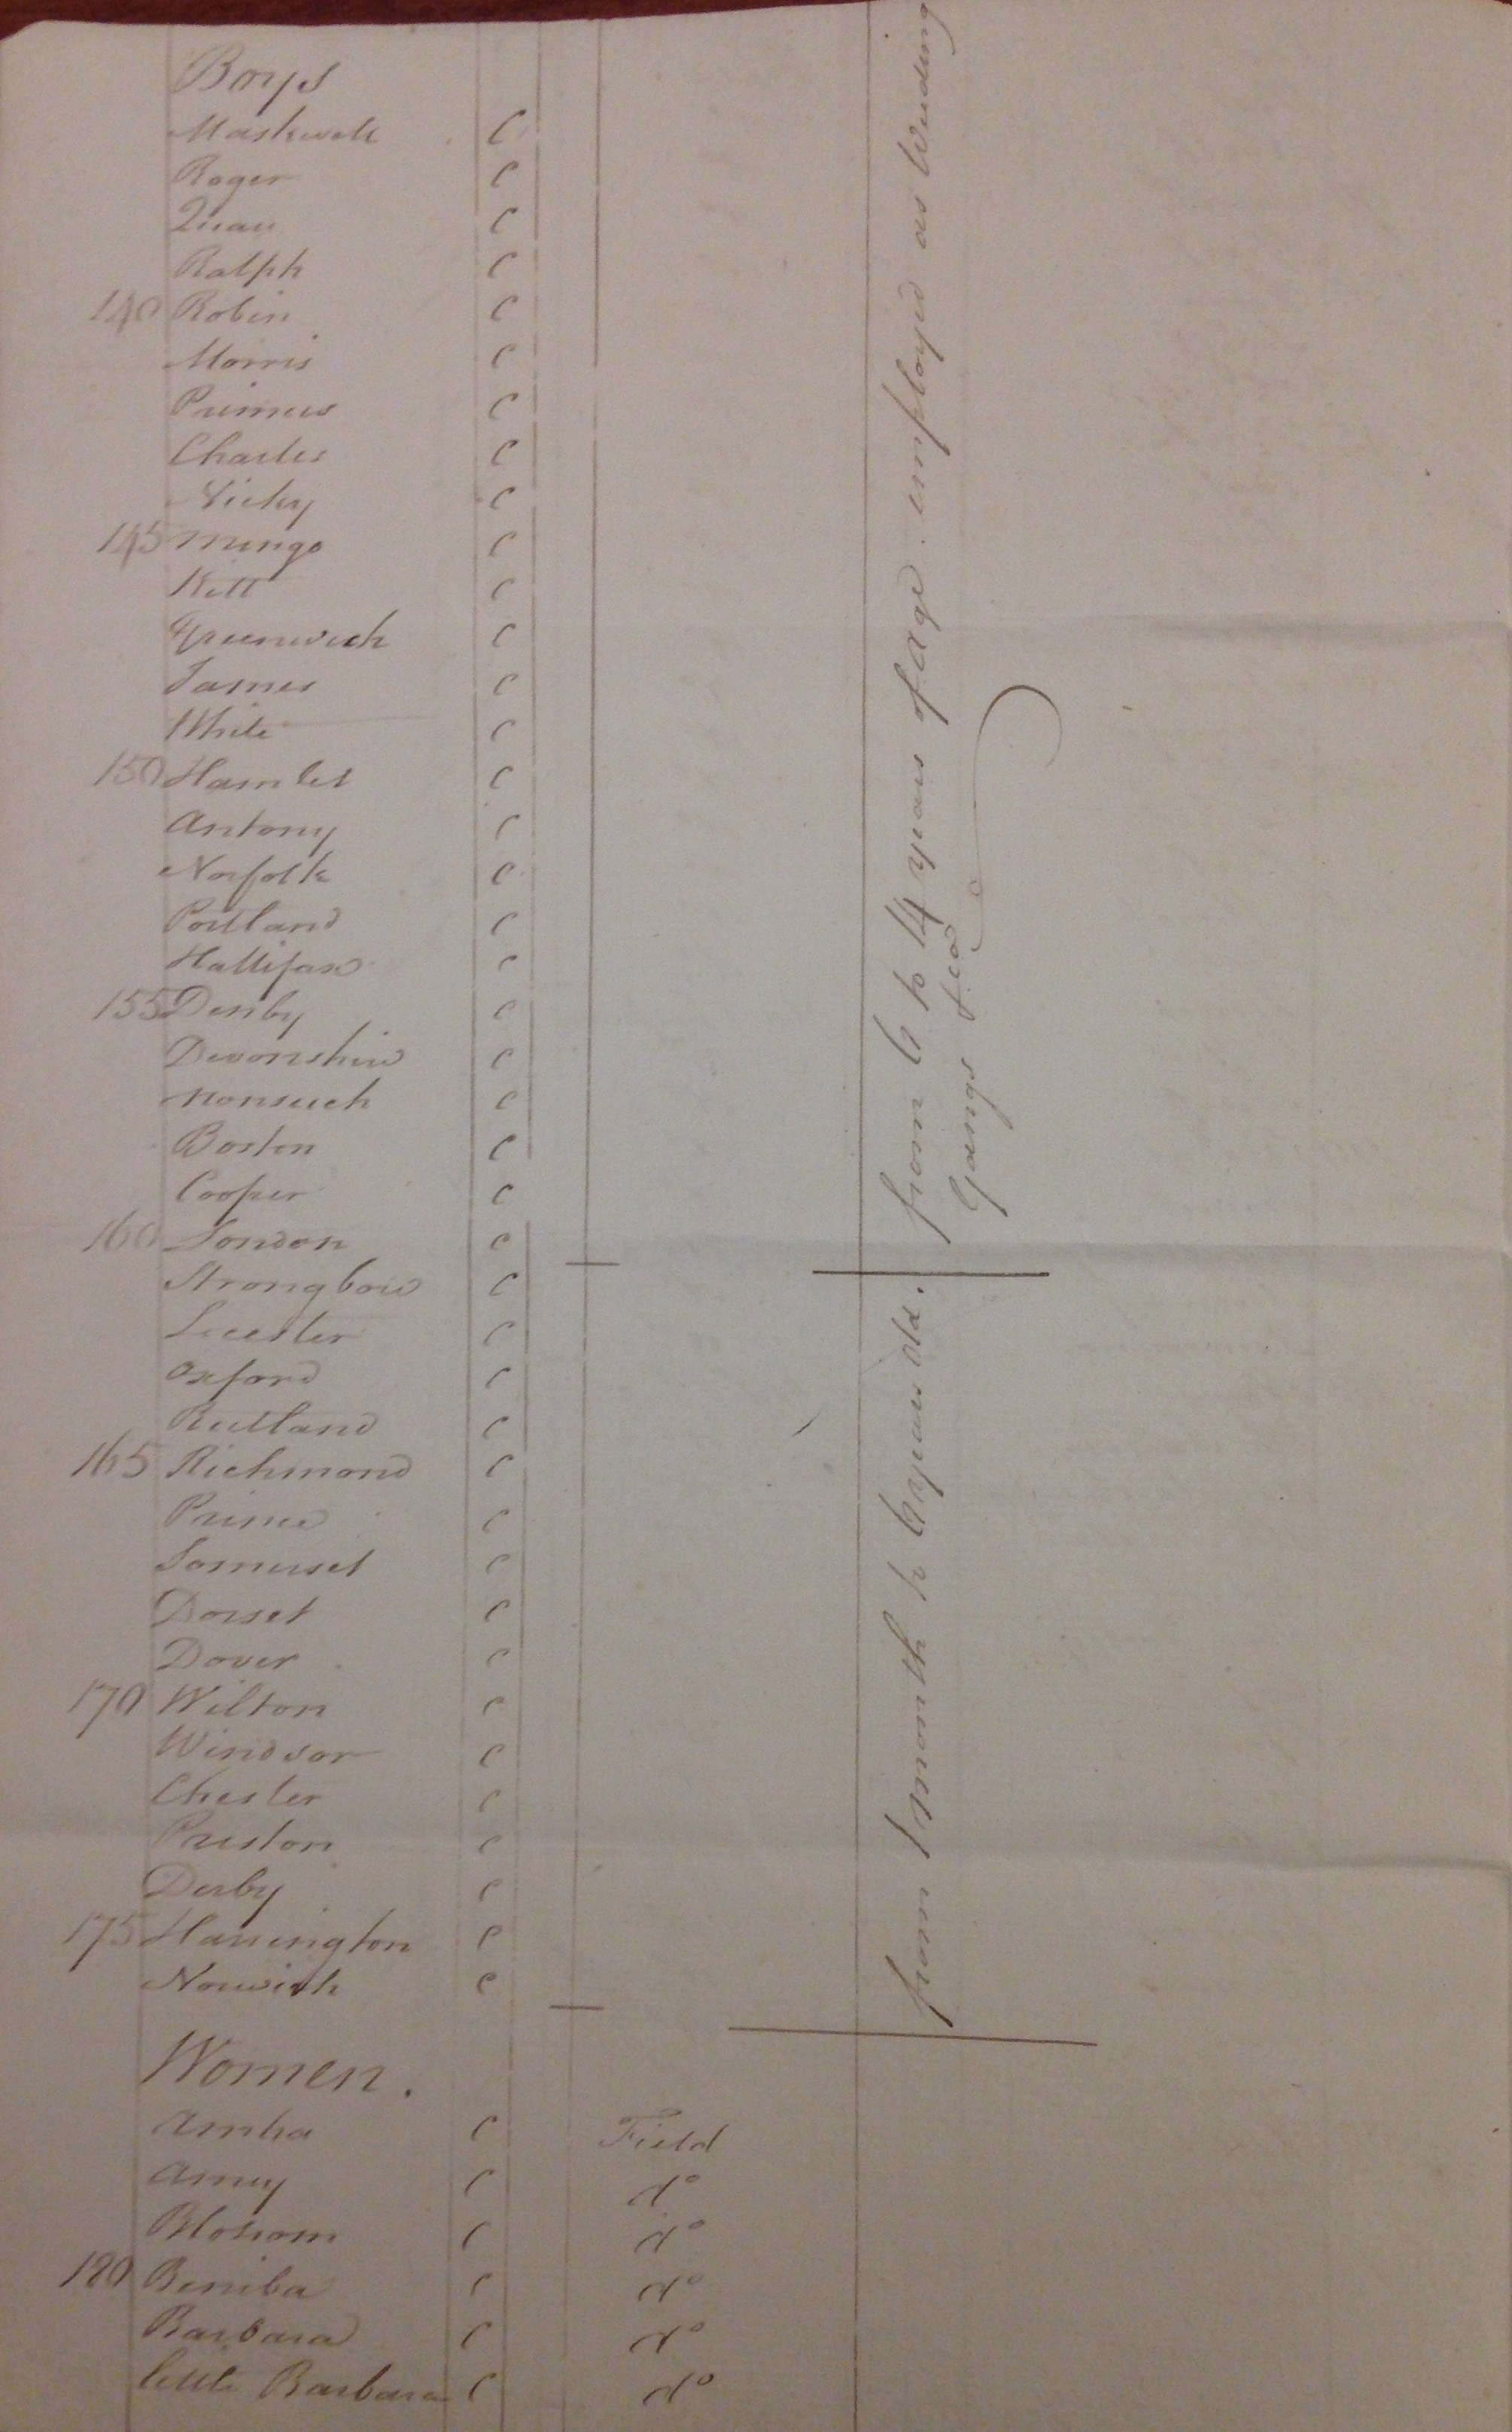 Boys
Maskwell C
Roger C
Quau C
Ralph C
140 Robin C
Morris C
Primus C
Charles C
Nicky C
145 Mingo C
Kitt C
Greenwich C
James C
White C
150 Hamlet C
Antony C
Norfolk C
Portland C
Hallifax C
155 Denby C
Devonshire C
Nonsuch C
Boston C
Cooper C
160 London C
Strongbow C
Leicester C
Oxford C
Rutland C
165 Richmond C
Prince C
Somerset C
Dorset C
Dover C
170 Wilton C
Windsor C
Chester C
Preston C
Derby C
175 Harrington C
Norwich C
from 6 to 14 years of age. employed as Weeding
Gangs &ca
from 1 month to 6 years old.
Women.
Amba C Field
Amey C do
Blossom C do
180 Beniba C do
Barbara C do
little Barbara C do